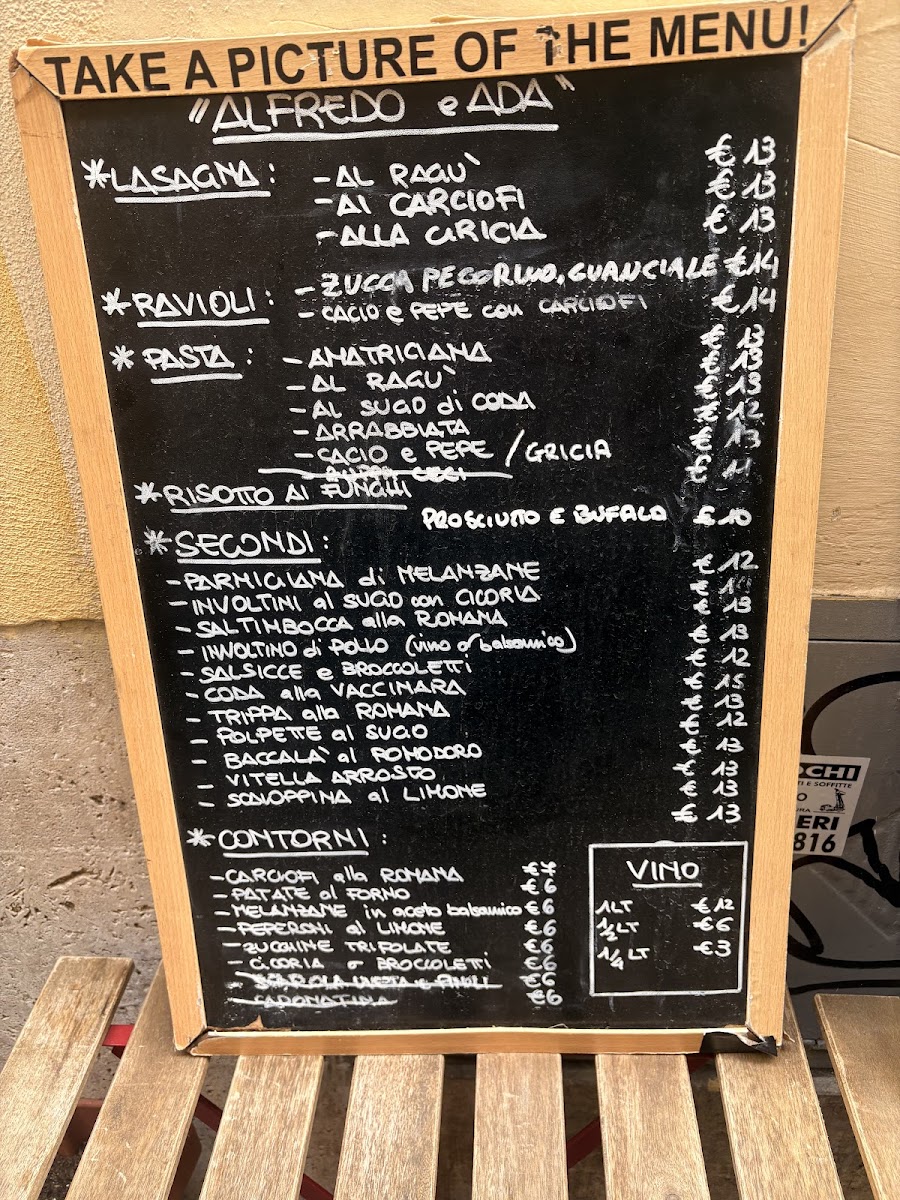 TAKE A PICTURE OF THE MENU!
"ALFREDO e ADA"
*LASAGNA: -AL RAGU' € 13
-AI CARCIOFI € 13
-ALLA GRICIA € 13
*RAVIOLI: -ZUCCA PECORINO, GUANCIALE €14
-CACIO e PEPE con CARCIOFI €14
*PASTA: -AMATRICIANA € 13
-AL RAGU' € 13
-AL SUGO di CODA € 13
-ARRABBIATA € 12
-CACIO e PEPE / GRICIA € 13
CECI
*RISOTTO AI FUNGHI € 11
PROSCIUTTO E BUFALA € 10
*SECONDI:
-PARMIGIANA di MELANZANE € 12
-INVOLTINI al SUGO con CICORIA €
-SALTIMBOCCA alla ROMANA € 13
-INVOLTINO di POLLO (vino o balsamico) € 13
-SALSICCE e BROCCOLETTI € 12
-CODA alla VACCINARA € 15
-TRIPPA alla ROMANA € 13
-POLPETTE al SUGO € 12
-BACCALA' al POMODORO € 13
-VITELLA ARROSTO € 13
-SCALOPPINA al LIMONE € 13
€ 13
*CONTORNI:
-CARCIOFI alla ROMANA €7
-PATATE al FORNO €6
-MELANZANE in aceto balsamico €6
-PEPERONI al LIMONE €6
-ZUCCHINE TRIFOLATE €6
-CICORIA o BROCCOLETI €6
-SCAROLA €6
€6
VINO
1LT € 12
1/2 LT € 6
1/4 LT € 3
OCHI
TI E SOFFITTE
O
ERI
816